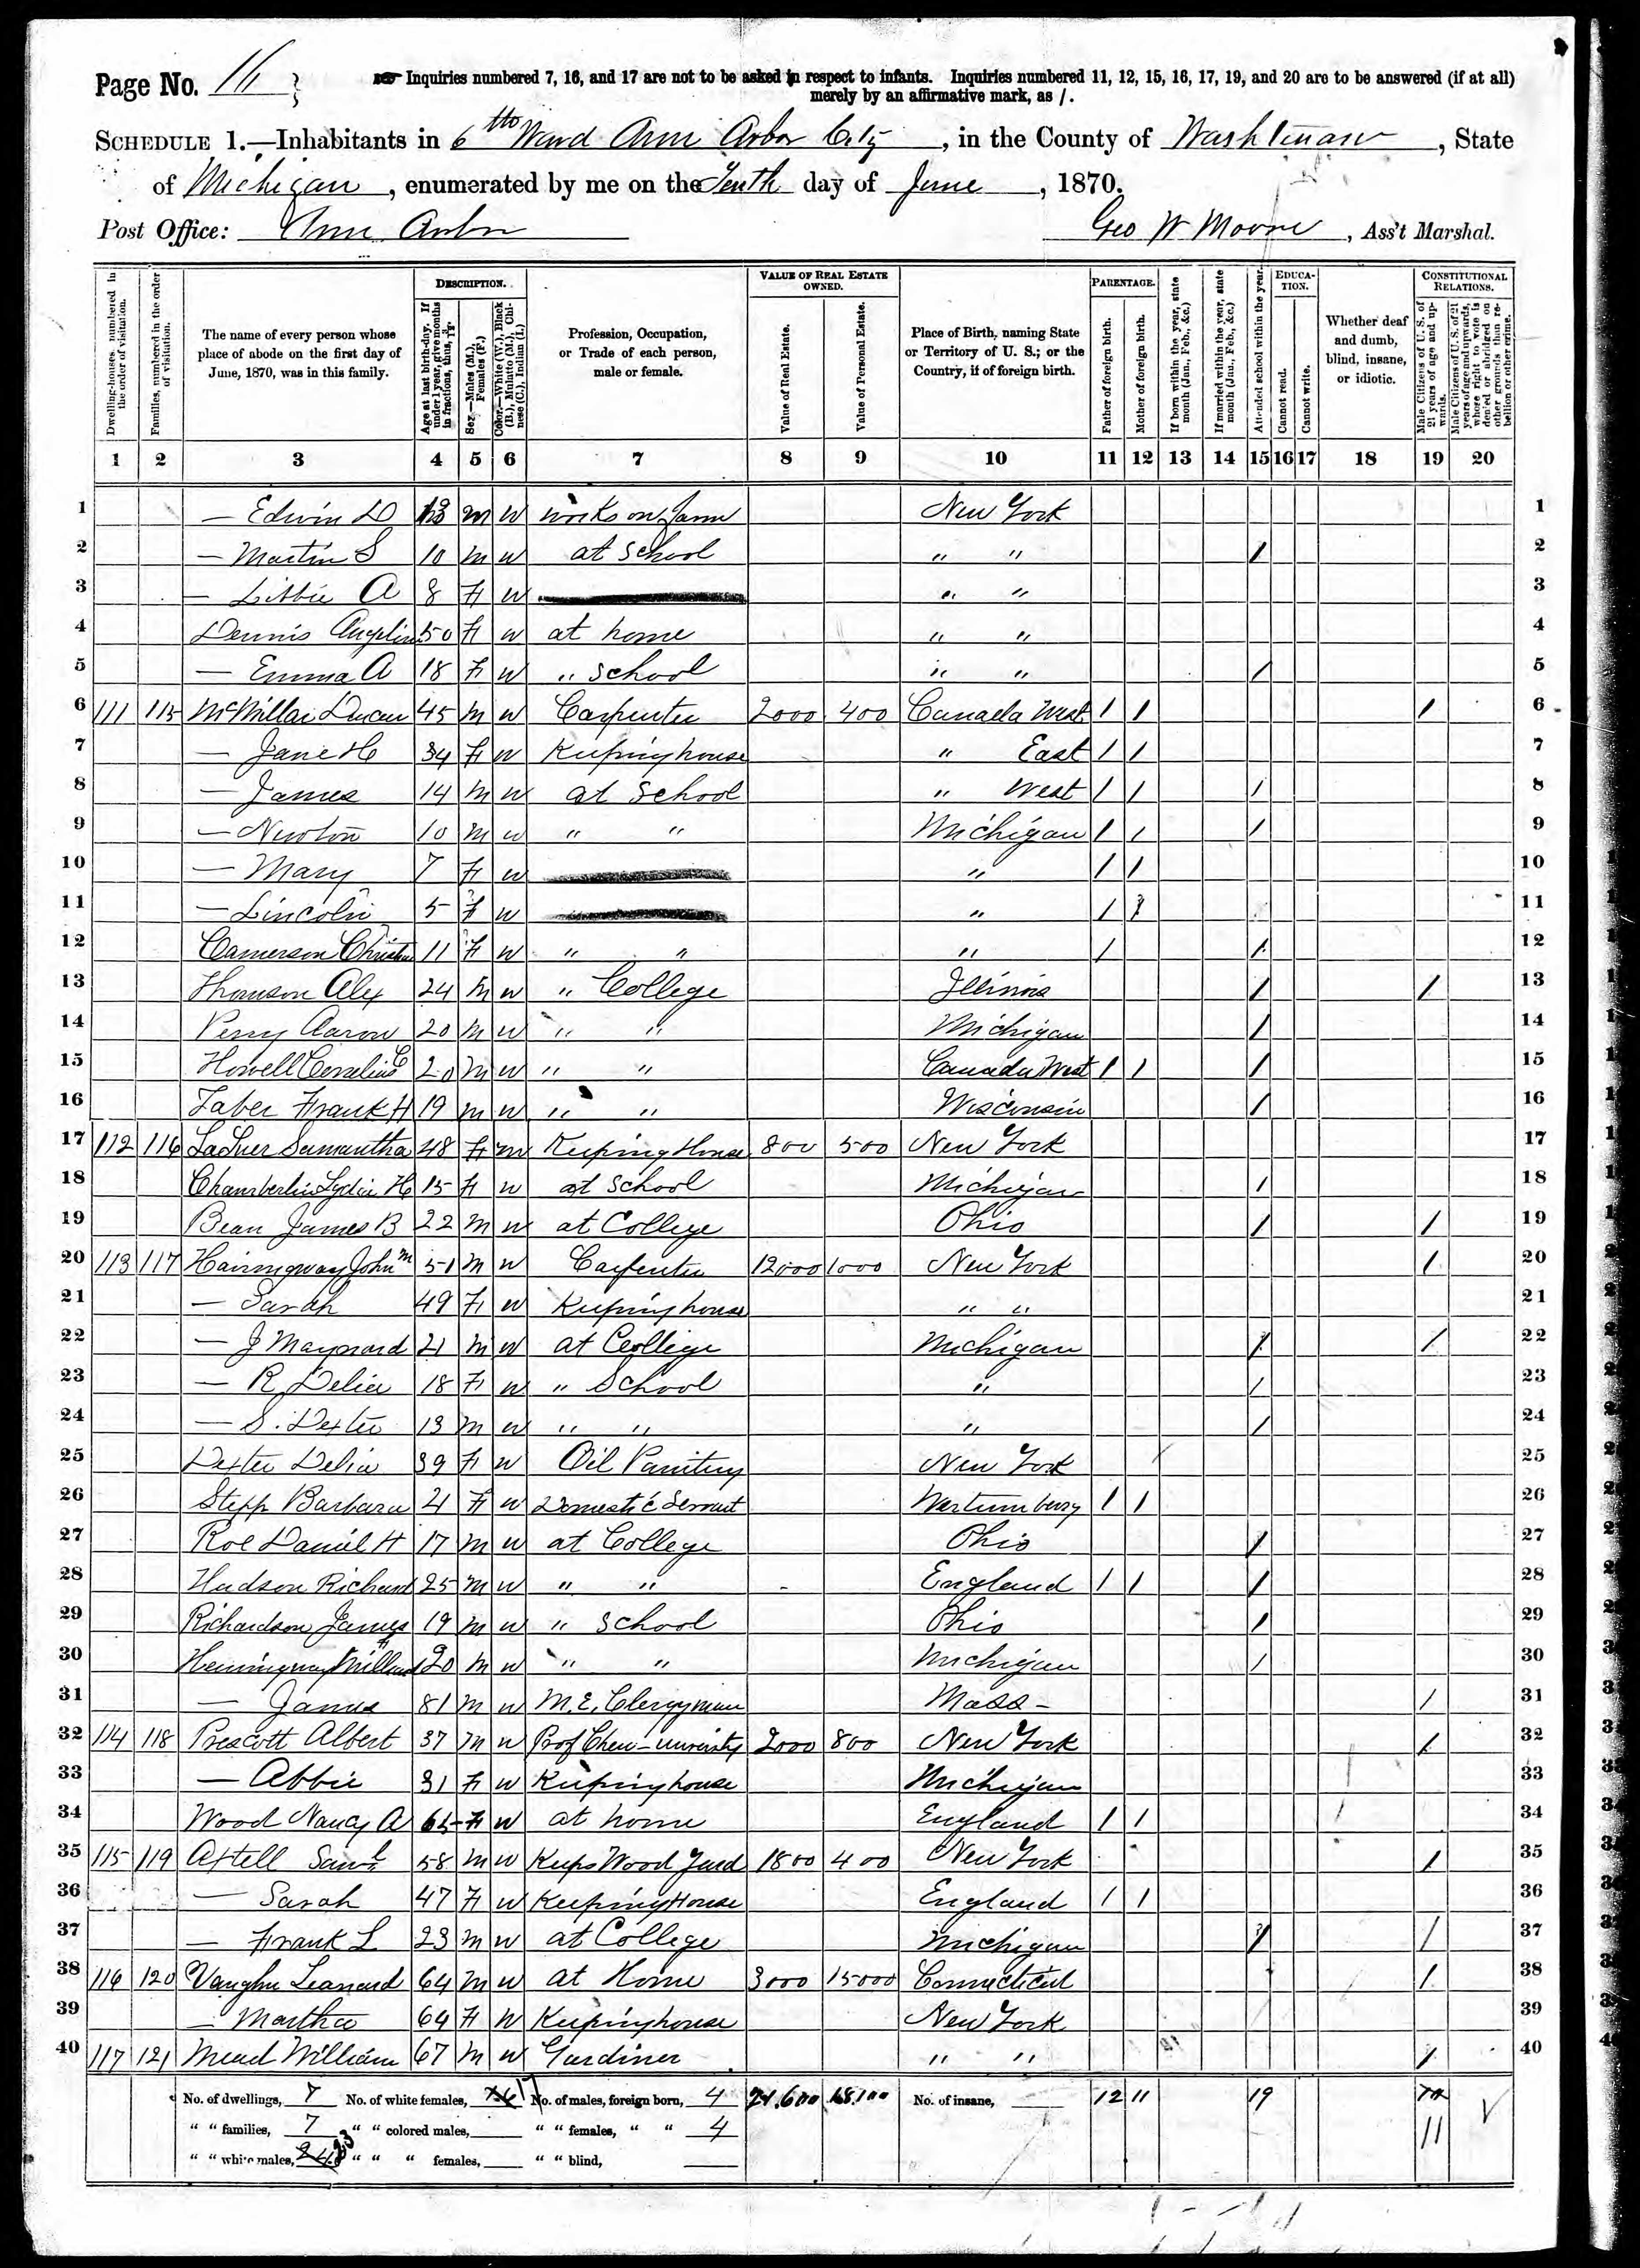 Page No. 16
Inquiries numbered 7, 16, and 17 are not to be asked in respect to infants. Inquiries numbered 11, 12, 15, 16, 17, 19, and 20 are to be answered (if at all)
merely by an affirmative mark, as /.
SCHEDULE 1.—Inhabitants in 6th Ward Ann Arbor City, in the County of Washtenaw, State
of Michigan, enumerated by me on the Tenth day of June, 1870.
Post Office: Ann Arbor Geo W Moore, Ass't Marshal.
DESCRIPTION. VALUE OF REAL ESTATE OWNED. PARENTAGE. EDUCATION. CONSTITUTIONAL RELATIONS.
Dwelling-houses, numbered in the order of visitation.
Families, numbered in the order of visitation.
The name of every person whose place of abode on the first day of June, 1870, was in this family.
Age at last birth-day. If under 1 year, give months in fractions, thus, 3/12.
Sex.—Males (M.), Females (F.)
Color.—White (W.), Black (B.), Mulatto (M.), Chinese (C.), Indian (I.)
Profession, Occupation, or Trade of each person, male or female.
Value of Real Estate.
Value of Personal Estate.
Place of Birth, naming State or Territory of U. S.; or the Country, if of foreign birth.
Father of foreign birth.
Mother of foreign birth.
If born within the year, state month (Jan., Feb., &c.)
If married within the year, state month (Jan., Feb., &c.)
Attended school within the year.
Cannot read.
Cannot write.
Whether deaf and dumb, blind, insane, or idiotic.
Male Citizens of U. S. of 21 years of age and upwards.
Male Citizens of U. S. of 21 years of age and upwards, where right to vote is denied or abridged on other grounds than rebellion or other crime.
1 2 3 4 5 6 7 8 9 10 11 12 13 14 15 16 17 18 19 20
1 — Edwin D 13 M W works on farm New York 1
2 — Martin S 10 M W at School " " / 2
3 — Libbie A 8 F W " " 3
4 Dennis Angeline 50 F W at home " " 4
5 — Emma A 18 F W " School " " / 5
6 111 115 McMillan Duncan 45 M W Carpenter 2000 400 Canada West / / / 6
7 — Jane H 34 F W Keeping house " East / / 7
8 — James 14 M W at School " West / / / 8
9 — Newton 10 M W " " Michigan / / / 9
10 — Mary 7 F W " / / 10
11 — Lincoln 5 F W " / / 11
12 Camerson Christine 11 F W " " " / / 12
13 Thomson Alex 24 M W " College Illinois / / 13
14 Perry Aaron 20 M W " " Michigan / 14
15 Howell Cornelius C 20 M W " " Canada West / / / 15
16 Taber Frank H 19 M W " " Wisconsin / 16
17 112 116 Samantha 48 F W Keeping House 800 500 New York 17
18 Chamberlin Lydia H 15 F W at School Michigan / 18
19 Bean James B 22 M W at College Ohio / / 19
20 113 117 Hainingway John M 51 M W Carpenter 12000 1000 New York / 20
21 — Sarah 49 F W Keeping house " " 21
22 — J Maynard 21 M W at College Michigan / / 22
23 — R Delia 18 F W " School " / 23
24 — S. Dexter 13 M W " " " / 24
25 Dexter Delia 39 F W Oil Painting New York 25
26 Stepp Barbara 21 F W Domestic Servant Wertumburg / / 26
27 Roe Daniel H 17 M W at College Ohio / 27
28 Hudson Richard 25 M W " " England / / / 28
29 Richardson James 19 M W " School Ohio / 29
30 Hemingway Millard 20 M W " " Michigan / 30
31 — James 81 M W M. E. Clergyman Mass / 31
32 114 118 Prescott Albert 37 M W Prof Chem - University 2000 800 New York / 32
33 — Abbie 31 F W Keeping house Michigan 33
34 Wood Nancy A 65 F W at home England / / 34
35 115 119 Axtell Saml 58 M W Keeps Wood Yard 1800 400 New York / 35
36 — Sarah 47 F W Keeping House England / / 36
37 — Frank L 23 M W at College Michigan / / 37
38 116 120 Vaughn Leanard 64 M W at Home 3000 15000 Connecticut / 38
39 — Martha 64 F W Keeping house New York 39
40 117 121 Mead William 67 M W Gardiner " " / 40
No. of dwellings, 7 No. of white females, 17 No. of males, foreign born, 4 21.600 18.100 No. of insane, 12 11 19
" " families, 7 " " colored males, " " females, " " 4 11
" " white males, 23 " " " females, " " blind,